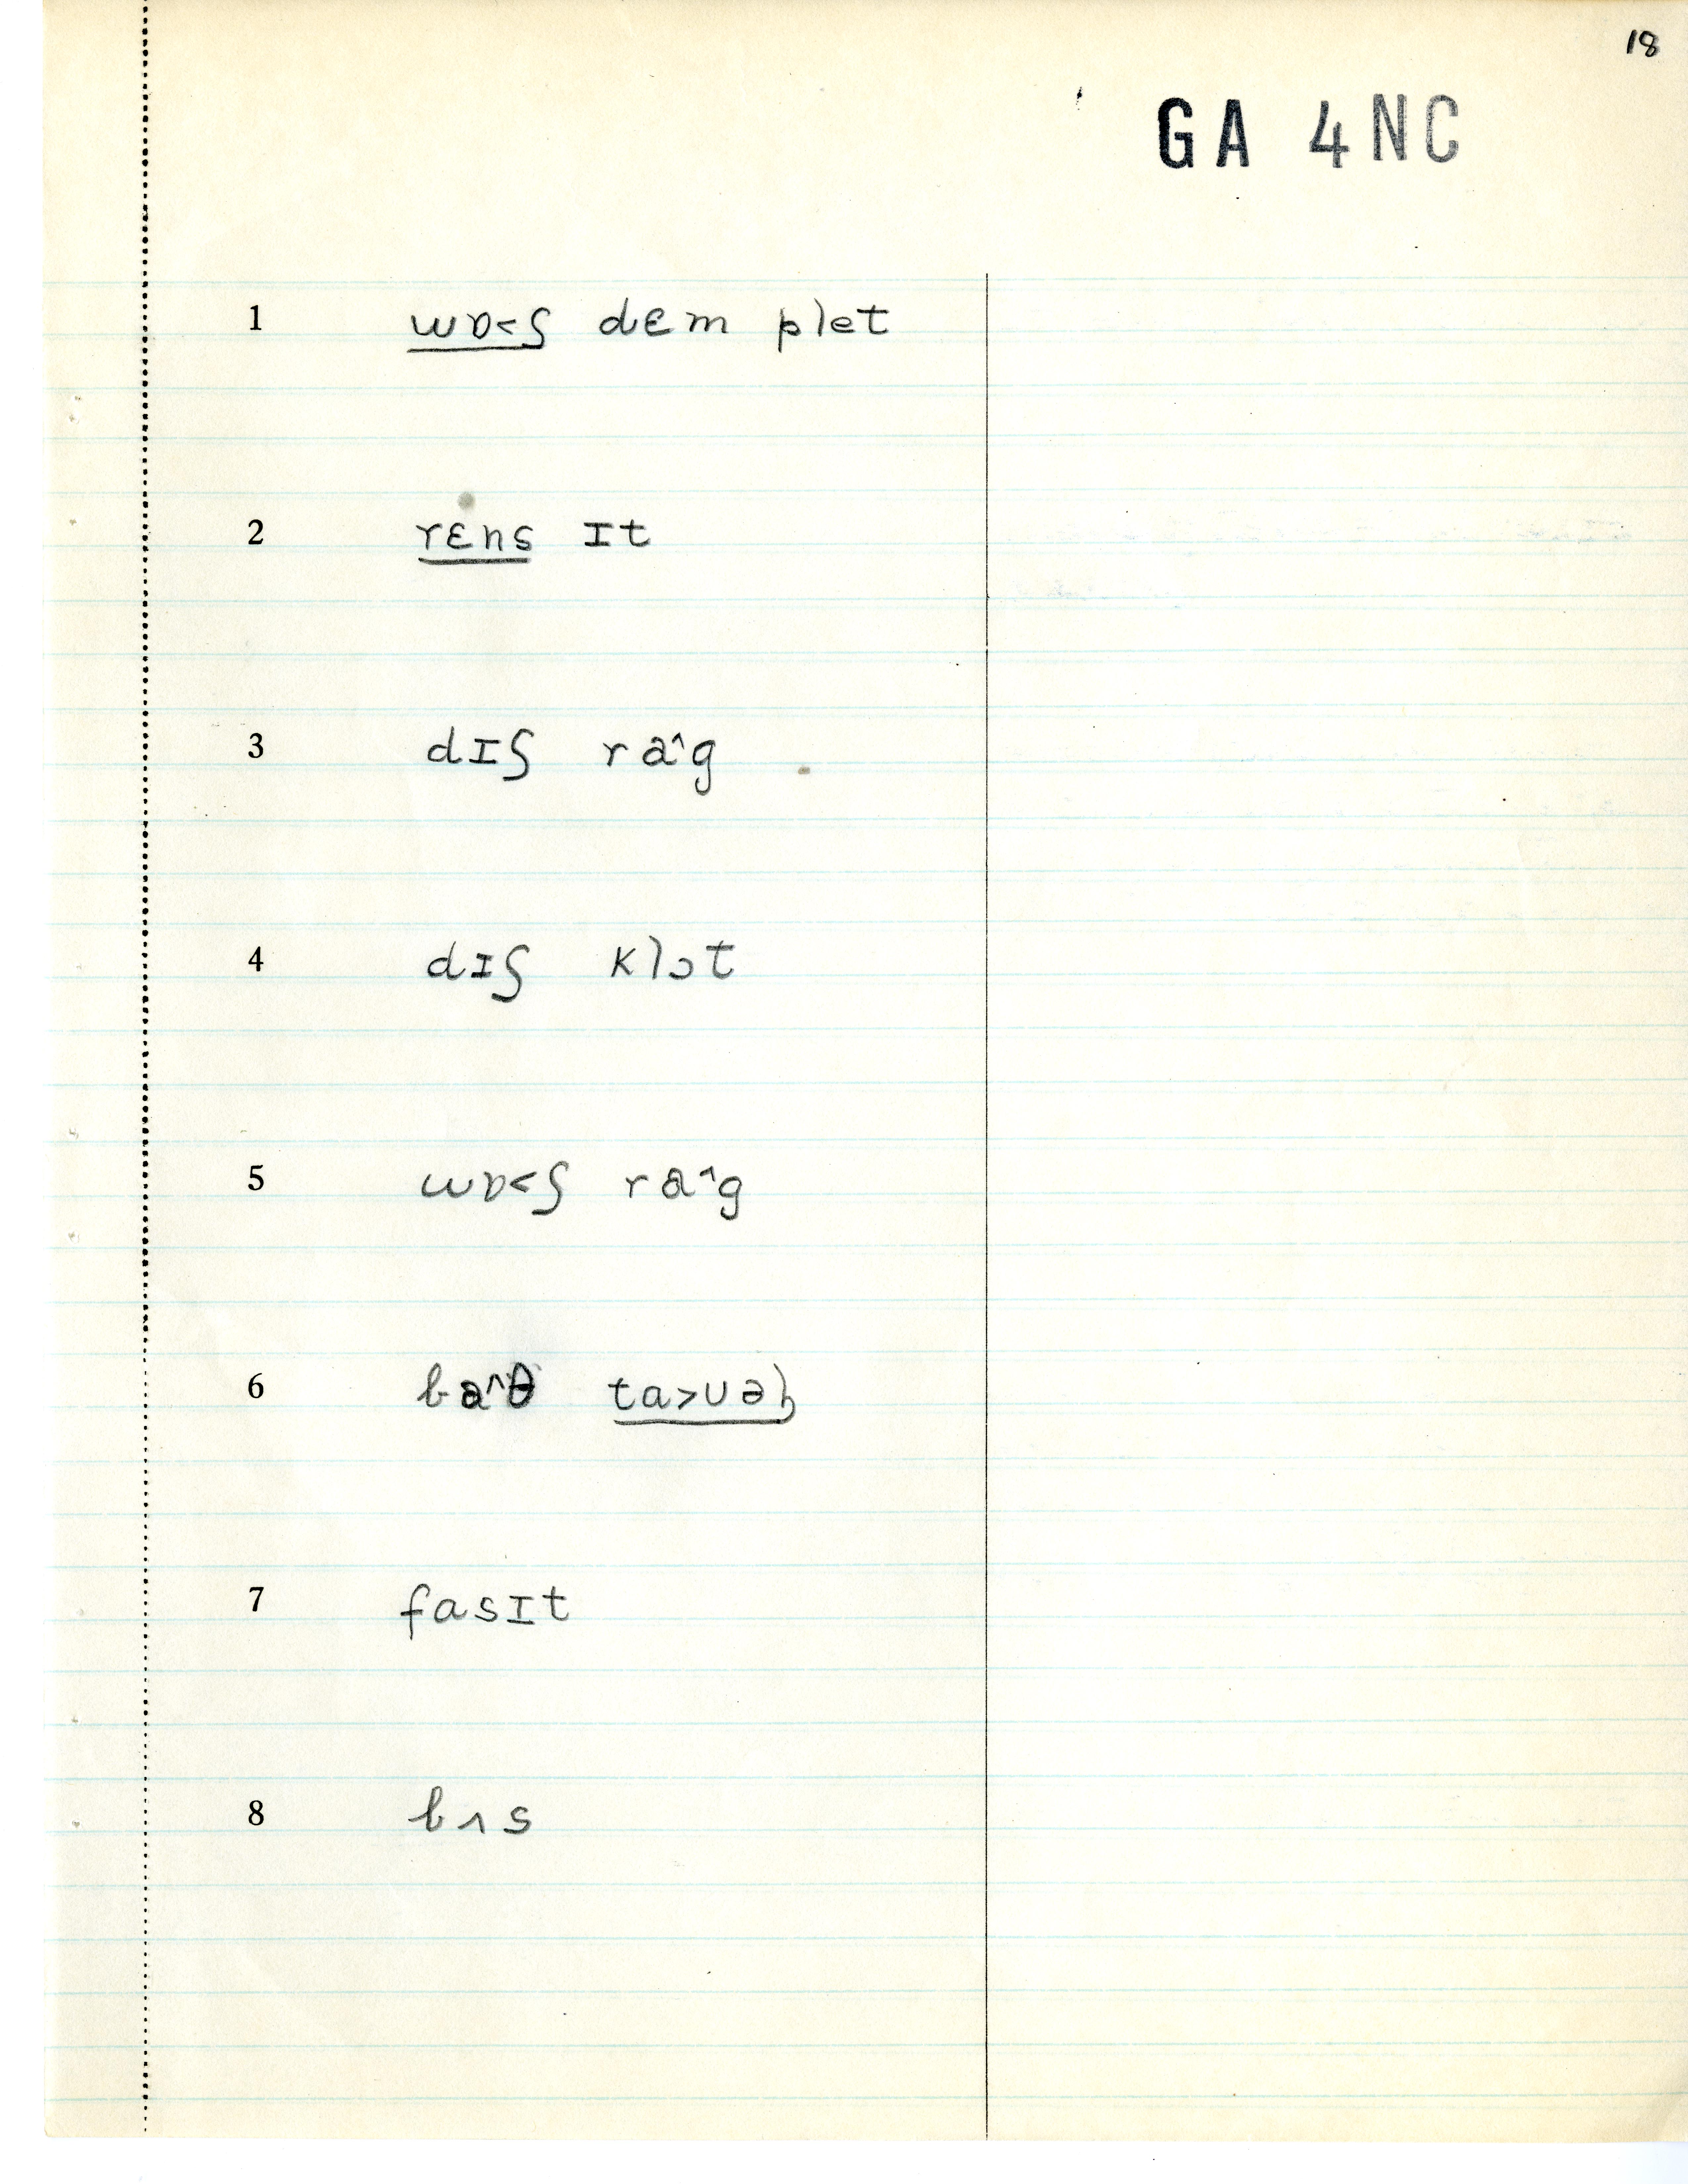 18
GA 4NC
1 wɒ<ʃ dɛm plet
2 rɛns ɪt
3 dɪʃ ra^g
4 dɪʃ klɔt
5 wɒ<ʃ ra^g
6 ba^θ ta>ʊəɫ
7 fasɪt
8 bʌs